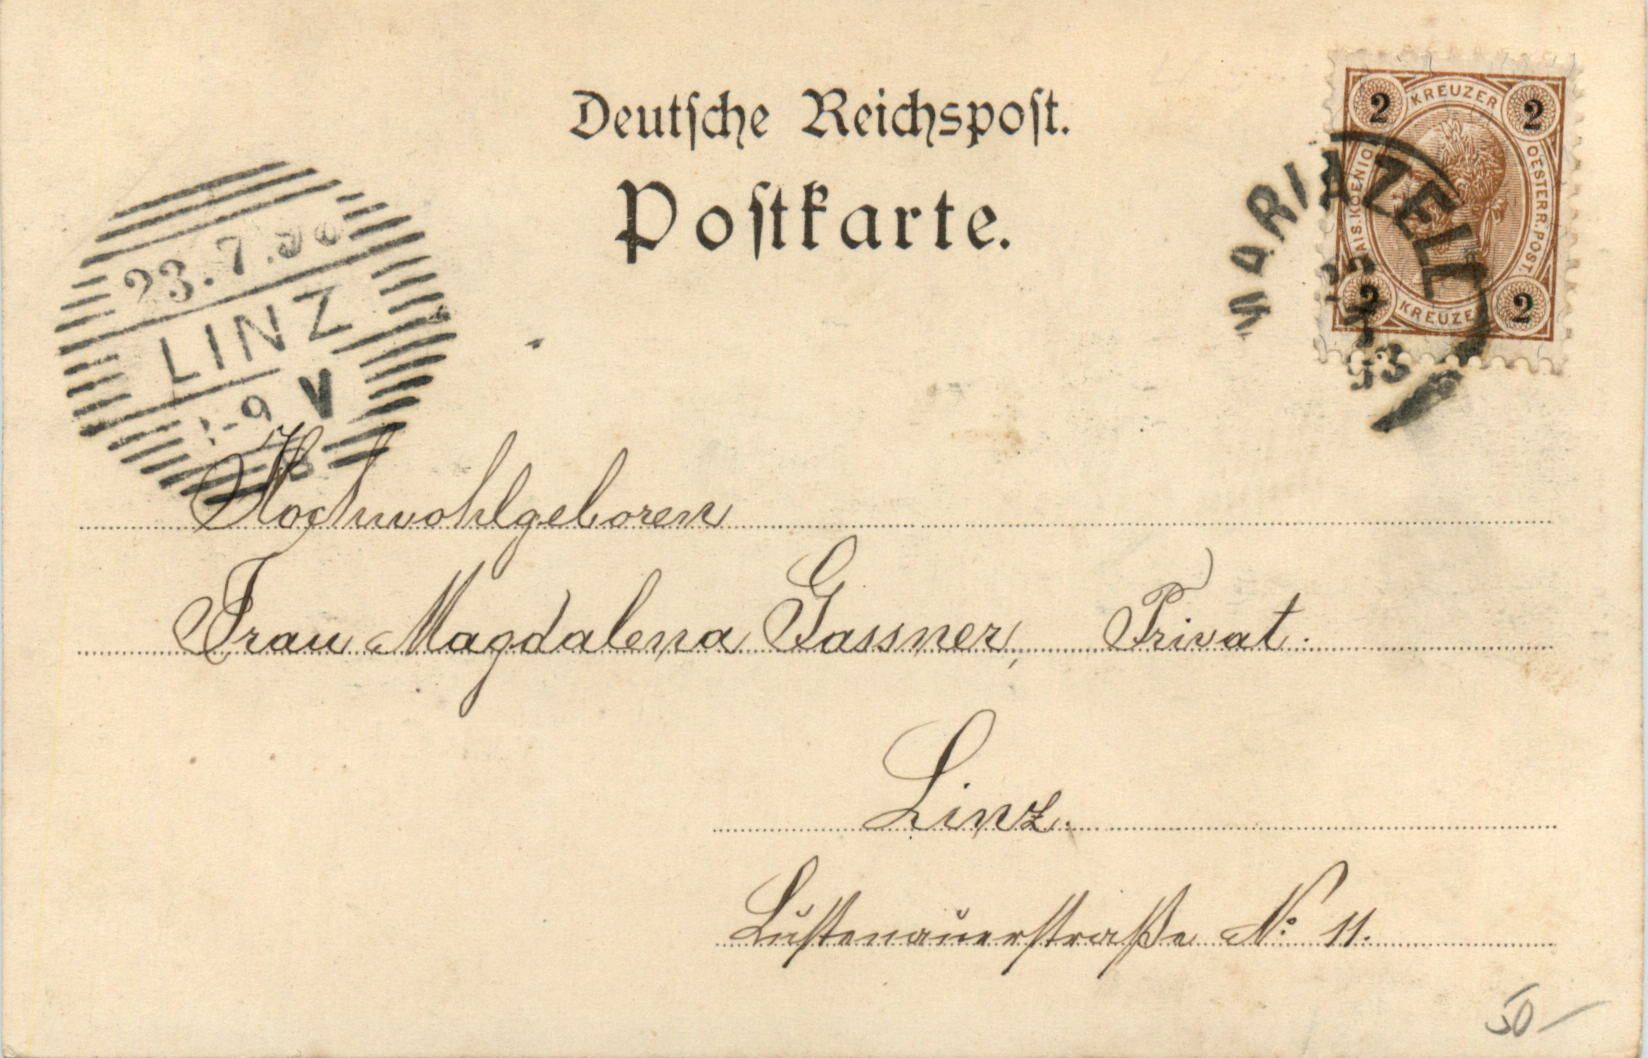 Deutsche Reichspost.
Postkarte.
KREUZER
2 2
KAIS. KOENIGL. OESTERR. POST.
2 2
KREUZER
MARIAZELL
23.7.98
LINZ
-9 V
Hochwohlgeboren
Frau Magdalena Gassner, Privat.
Linz.
Lustenauerstraße No. 11.
50-